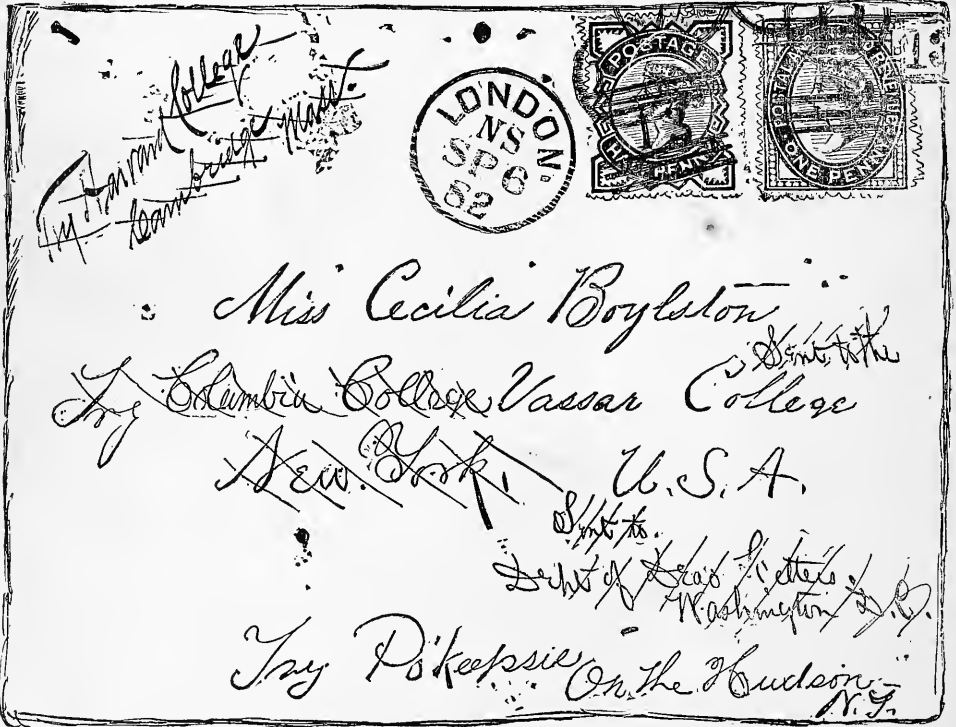 Try Harvard College
Cambridge Mass.
LONDON.
NS
SP 6
52
POSTAGE
HALF PENNY
ONE PENNY
1D
Miss Cecilia Boylston
Sent to the
Try Columbia College Vassar College
New York, U.S.A.
Sent to.
Dept of Dead Letters.
Washington D.C.
Try Po'keepsie On the Hudson
N.Y.